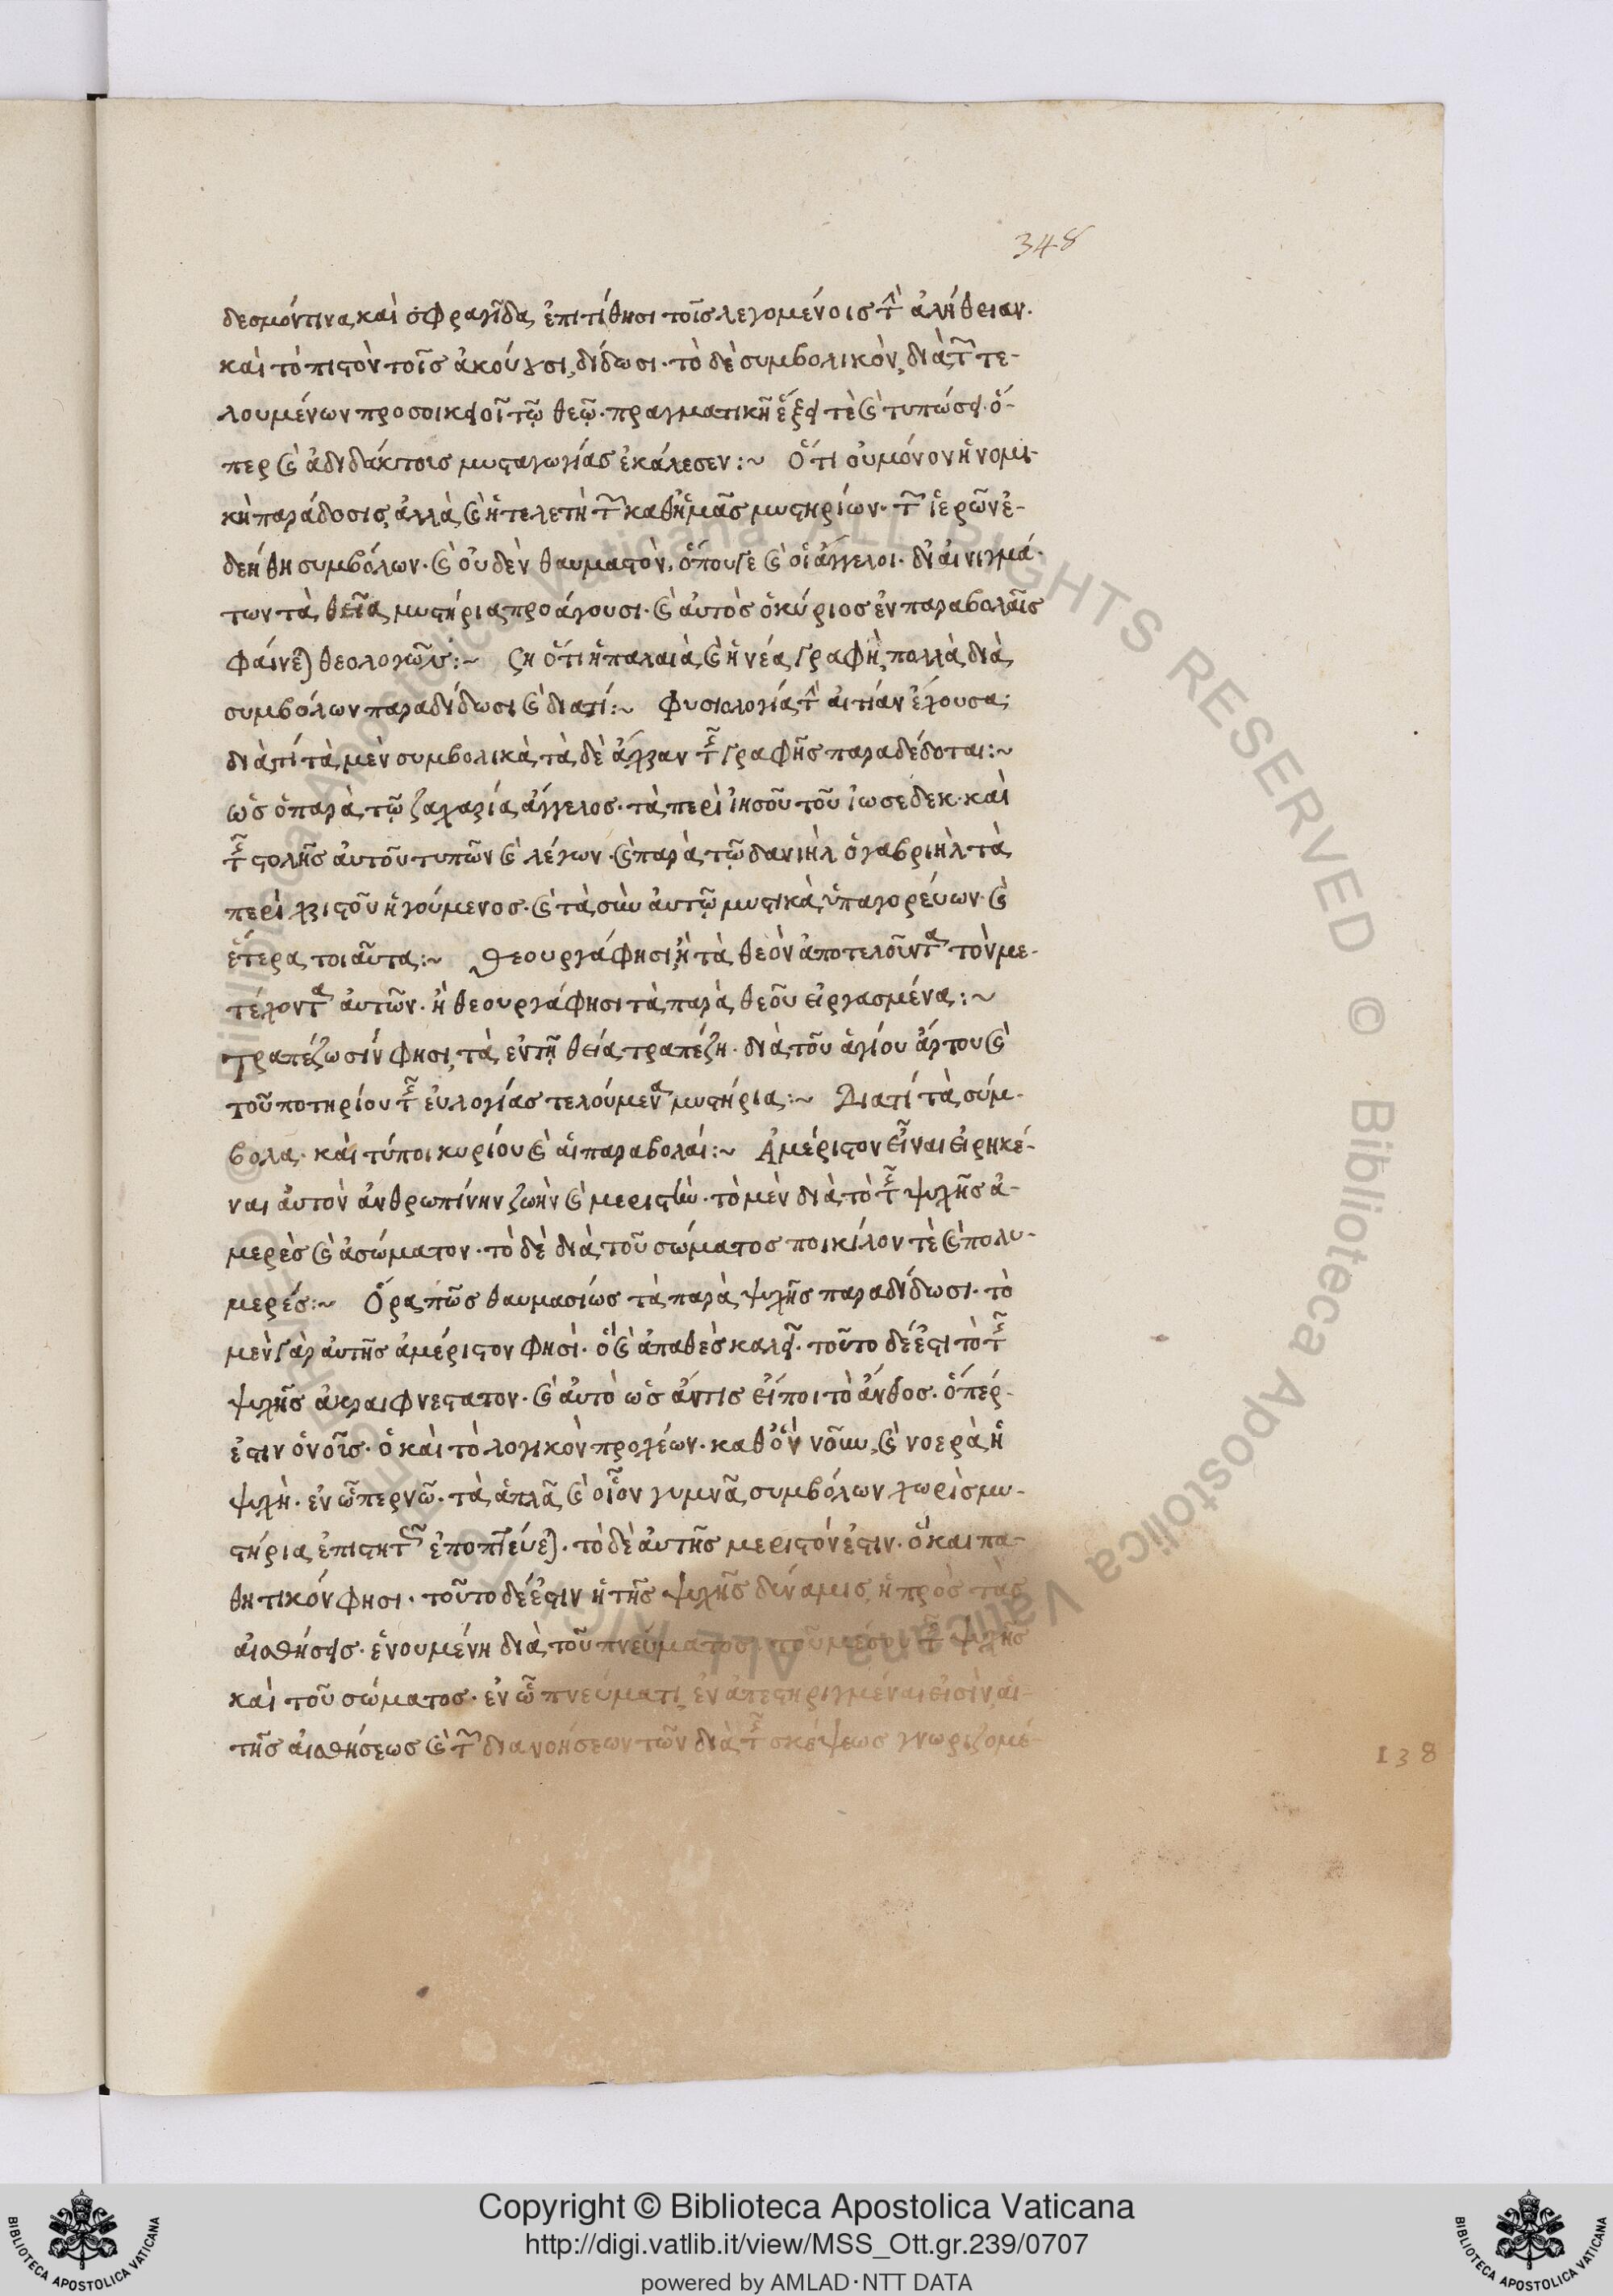 348
δεσμόν τινα καὶ σφραγῖδα ἐπιτίθησι τοῖς λεγομένοις τὴν ἀλήθειαν.
καὶ τὸ πιστὸν τοῖς ἀκούουσι δίδωσι. τὸ δὲ συμβολικὸν, διὰ τῶν τε-
λουμένων προσοικειοῖ τῷ θεῷ. πραγματικῇ ἕξει τὲ καὶ τυπώσει. ὅ-
περ καὶ ἀδιδάκτοις μυσταγωγίας ἐκάλεσεν :~ Ὅτι οὐ μόνον ἡ νομι-
κὴ παράδοσις, ἀλλὰ καὶ ἡ τελετὴ τῶν καθ' ἡμᾶς μυστηρίων. τῶν ἱερῶν ἐ-
δεήθη συμβόλων. καὶ οὐδὲν θαυμαστὸν, ὅπου γε καὶ οἱ ἄγγελοι. δι' αἰνιγμά-
των τὰ θεῖα μυστήρια προάγουσι. καὶ αὐτὸς ὁ κύριος ἐν παραβολαῖς
φαίνεται θεολογῶν :~ ση ὅτι ἡ παλαιὰ καὶ ἡ νέα γραφὴ, πολλὰ διὰ
συμβόλων παραδίδωσι καὶ διατί :~ Φυσιολογία τὴν αἰτίαν ἔχουσα;
διὰ τί τὰ μὲν συμβολικὰ, τὰ δὲ ἄλλα τῆς γραφῆς παραδέδοται :~
ὡς ὁ παρὰ τῷ ζαχαρία ἄγγελος. τὰ περὶ ἰησοῦ τοῦ ἰωσεδεκ. καὶ
τῆς στολῆς αὐτοῦ τυπῶν καὶ λέγων. καὶ παρὰ τῷ δανιὴλ ὁ γαβριὴλ τὰ
περὶ χριστοῦ ἡγούμενος. καὶ τὰ σὺν αὐτῷ μυστικὰ, ὑπαγορεύων. καὶ
ἕτερα τοιαῦτα :~ Θεουργά φησι, ἢ τὰ θεὸν ἀποτελοῦντα τὸν με-
τέχοντα αὐτῶν. ἢ θεουργά φησι τὰ παρὰ θεοῦ εἰργασμένα :~
Τραπέζωσίν φησι, τὰ ἐν τῇ θεία τραπέζη. διὰ τοῦ ἁγίου ἄρτου καὶ
τοῦ ποτηρίου τῆς εὐλογίας τελούμενα μυστήρια :~ Διατί τὰ σύμ-
βολα. καὶ τύποι κυρίου καὶ αἱ παραβολαί :~ Ἀμέριστον εἶναι εἰρηκέ-
ναι αὐτὸν ἀνθρωπίνην ζωὴν καὶ μεριστὴν. τὸ μὲν διὰ τὸ τῆς ψυχῆς ἀ-
μερὲς καὶ ἀσώματον. τὸ δὲ διὰ τοῦ σώματος ποικίλον τὲ καὶ πολυ-
μερές :~ Ὅρα πῶς θαυμασίως τὰ παρὰ ψυχῆς παραδίδωσι. τὸ
μὲν γὰρ αὐτῆς ἀμέριστον φησὶ. ὃ καὶ ἀπαθὲς καλεῖ. τοῦτο δέ ἐστι τὸ τῆς
ψυχῆς ἀκραιφνέστατον. καὶ αὐτὸ ὡς ἄν τις εἴποι τὸ ἄνθος. ὅπερ
ἐστιν ὁ νοῦς. ὁ καὶ τὸ λογικὸν προχέων. καθ' ὃν νοῦν, καὶ νοερὰ ἡ
ψυχὴ. ἐν ᾧπερ νῷ. τὰ ἁπλᾶ καὶ οἷον γυμνᾶ συμβόλων χωρὶς μυ-
στήρια ἐπιστητῶν ἐποπτεύεται. τὸ δὲ αὐτῆς μεριστόν ἐστιν. ὃ και πα-
θητικόν φησι. τοῦτο δέ ἐστιν ἡ τῆς ψυχῆς δύναμις, ἡ πρὸς τὰς
αἰσθήσεις. ἑνουμένη διὰ τοῦ πνεύματος τοῦ μέσου τῆς ψυχῆς
καὶ τοῦ σώματος. ἐν ᾧ πνεύματι, ἐναπεστηριγμέναι εἰσὶν, αἱ
τῆς αἰσθήσεως καὶ τῶν διανοήσεων τῶν διὰ τῆς σκέψεως γνωριζομέ-
138
Copyright © Biblioteca Apostolica Vaticana
http://digi.vatlib.it/view/MSS_Ott.gr.239/0707
powered by AMLAD · NTT DATA
BIBLIOTECA APOSTOLICA VATICANA
BIBLIOTECA APOSTOLICA VATICANA